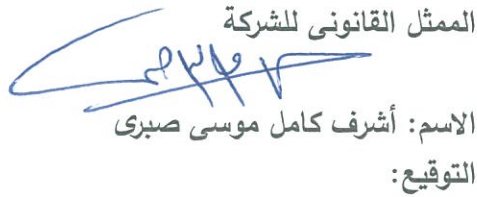 الممثل القانونى للشركة
الاسم: أشرف كامل موسى صبرى
التوقيع: